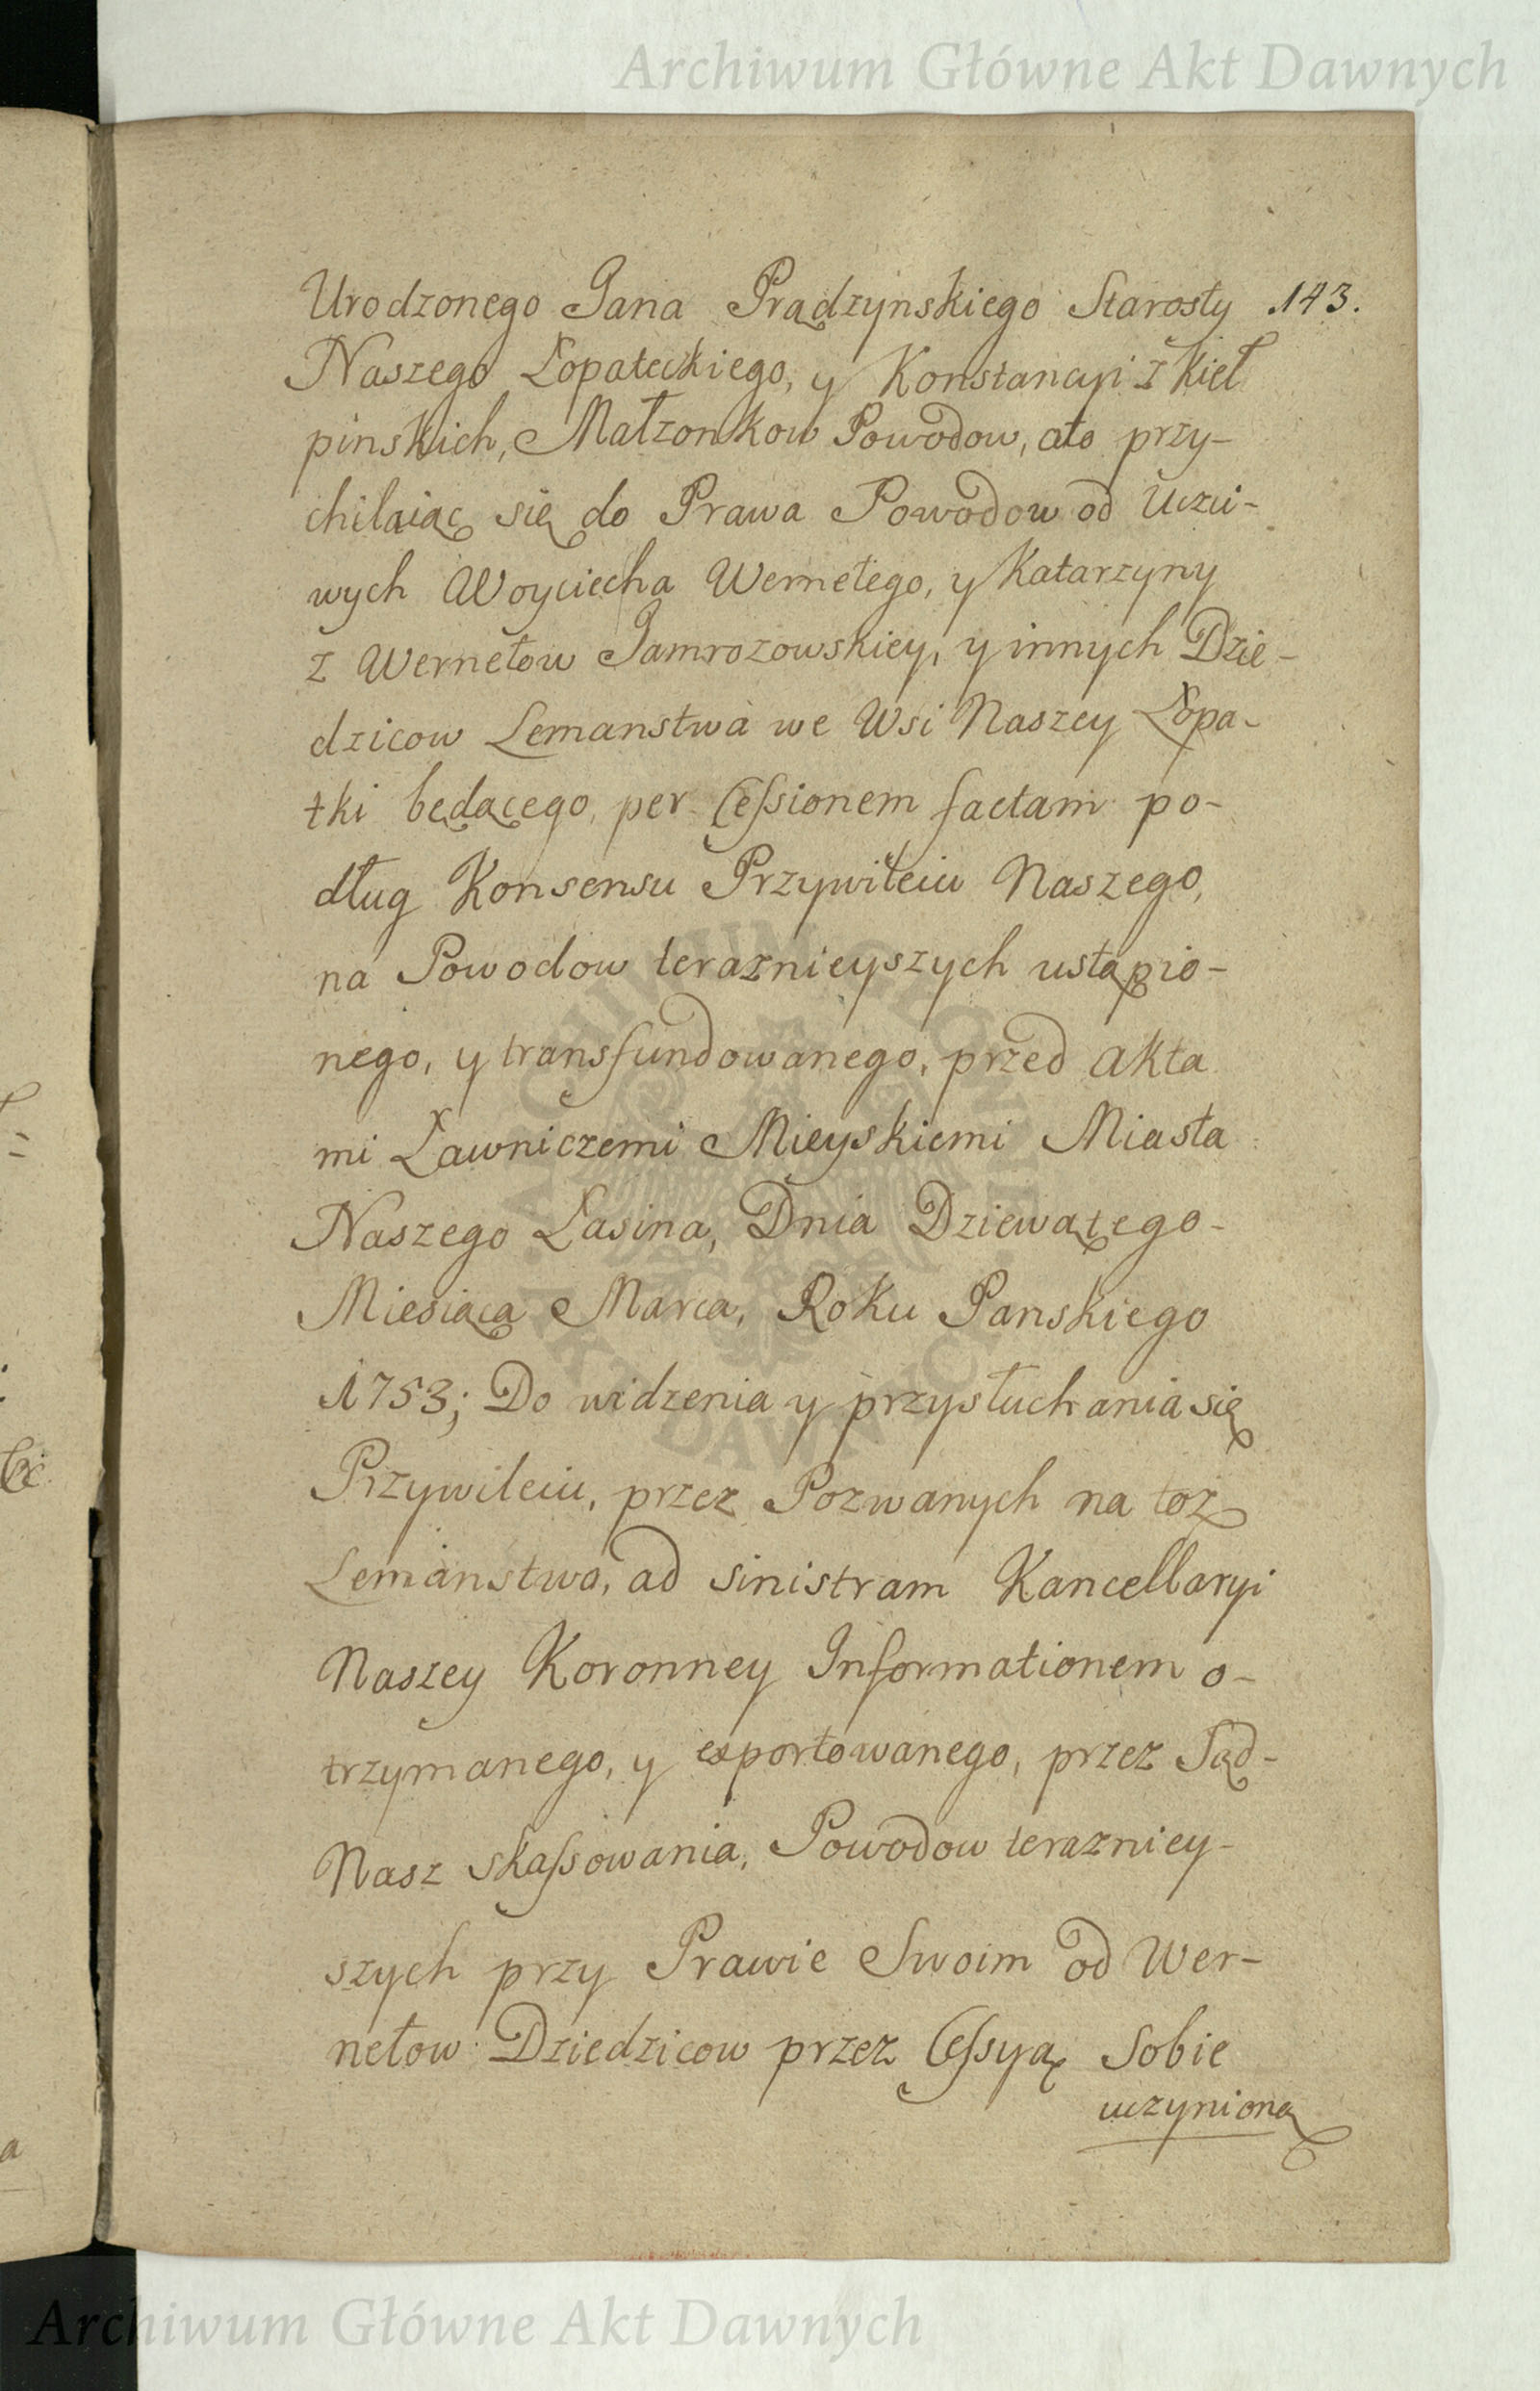 Archiwum Główne Akt Dawnych
Urodzonego Jana Prądzynskiego Starosty 143.
Naszego Łopateckiego, y Konstancyi z Kieł
pinskich, Małzonkow Powodow, ato przy-
chilaiąc się do Prawa Powodow od Uczci-
wych Woyciecha Wernetego, y Katarzyny
z Wernetow Jamrozowskiey, y innych Dzie-
dzicow Lemanstwa we Wsi Naszey Łopa-
tki będącego, per Cessionem factam po-
dług Konsensu Przywileiu Naszego,
na Powodow teraznieyszych ustąpio-
nego, y transfundowanego, przed Akta
mi Ławniczemi Mieyskiemi Miasta
Naszego Łasina, Dnia Dziewątego-
Miesiąca Marca, Roku Panskiego
1753; Do widzenia y przysłuchania się
Przywileiu, przez Pozwanych na toz
Lemanstwo, ad sinistram Kancellaryi
Naszey Koronney Informationem o-
trzymanego, y exportowanego, przez Sąd-
Nasz skassowania, Powodow terazniey-
szych przy Prawie Swoim od Wer-
netow Dziedzicow przez Cessyą Sobie
uczynioną
Archiwum Główne Akt Dawnych